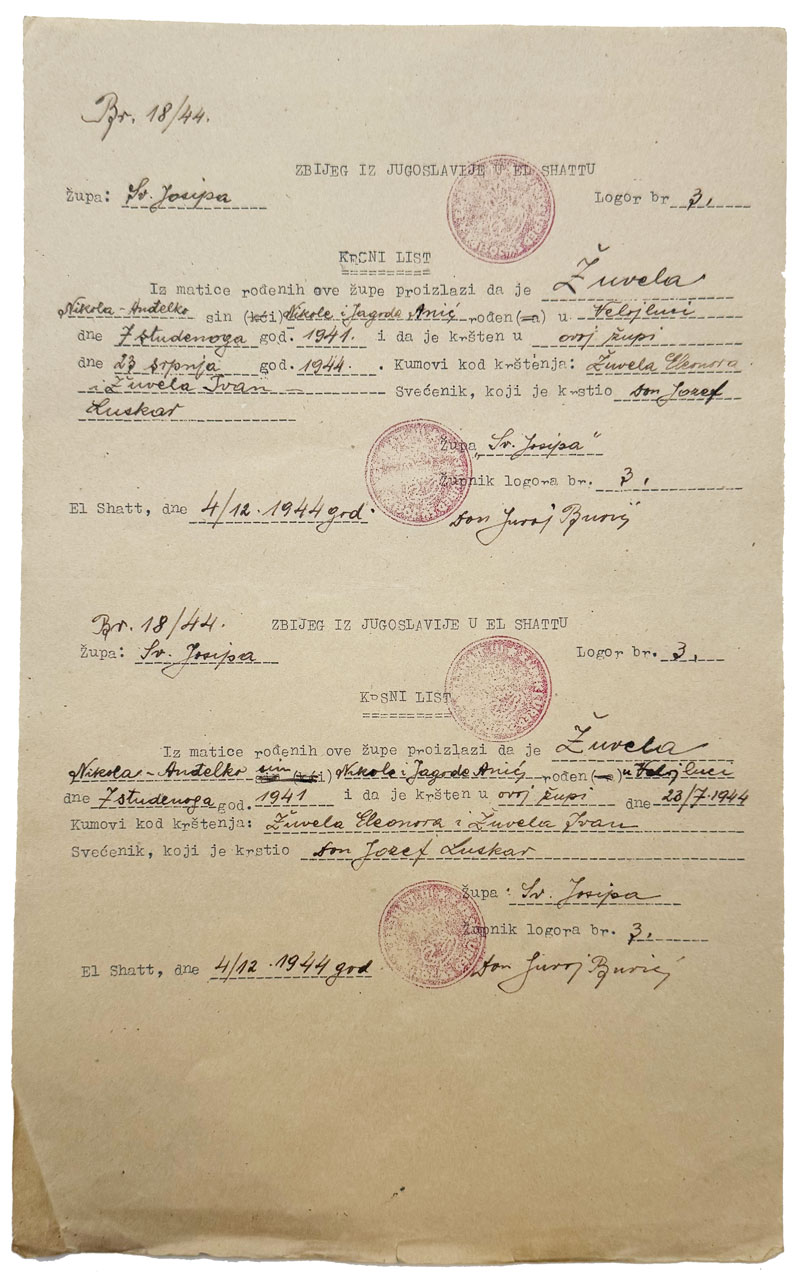 Br. 18/44.
ZBIJEG IZ JUGOSLAVIJE U EL SHATTU
Župa: Sv. Josipa Logor br 3.
KRSNI LIST
Iz matice rođenih ove župe proizlazi da je Žuvela
Nikola-Anđelko sin (kći) Nikole i Jagode Anić rođen(-a) u Velojluci
dne 7 studenoga god. 1941. i da je kršten u ovoj župi
dne 23 srpnja god. 1944. Kumovi kod krštenja: Žuvela Eleonora
i Žuvela Ivan Svećenik, koji je krstio Don Jozef
Luskar
Župa "Sv. Josipa"
Župnik logora br. 3.
El Shatt, dne 4/12.1944 god.
Don Juroj Burić
Br. 18/44. ZBIJEG IZ JUGOSLAVIJE U EL SHATTU
Župa: Sv. Josipa Logor br. 3.
KRSNI LIST
Iz matice rođenih ove župe proizlazi da je Žuvela
Nikola-Anđelko sin (kći) Nikole i Jagode Anić rođen(-a) u Velojluci
dne 7 studenoga god. 1941 i da je kršten u ovoj župi dne 23/7.1944
Kumovi kod krštenja: Žuvela Eleonora i Žuvela Ivan
Svećenik, koji je krstio Don Jozef Luskar
Župa Sv. Josipa
Župnik logora br. 3.
El Shatt, dne 4/12.1944 god
Don Juroj Burić